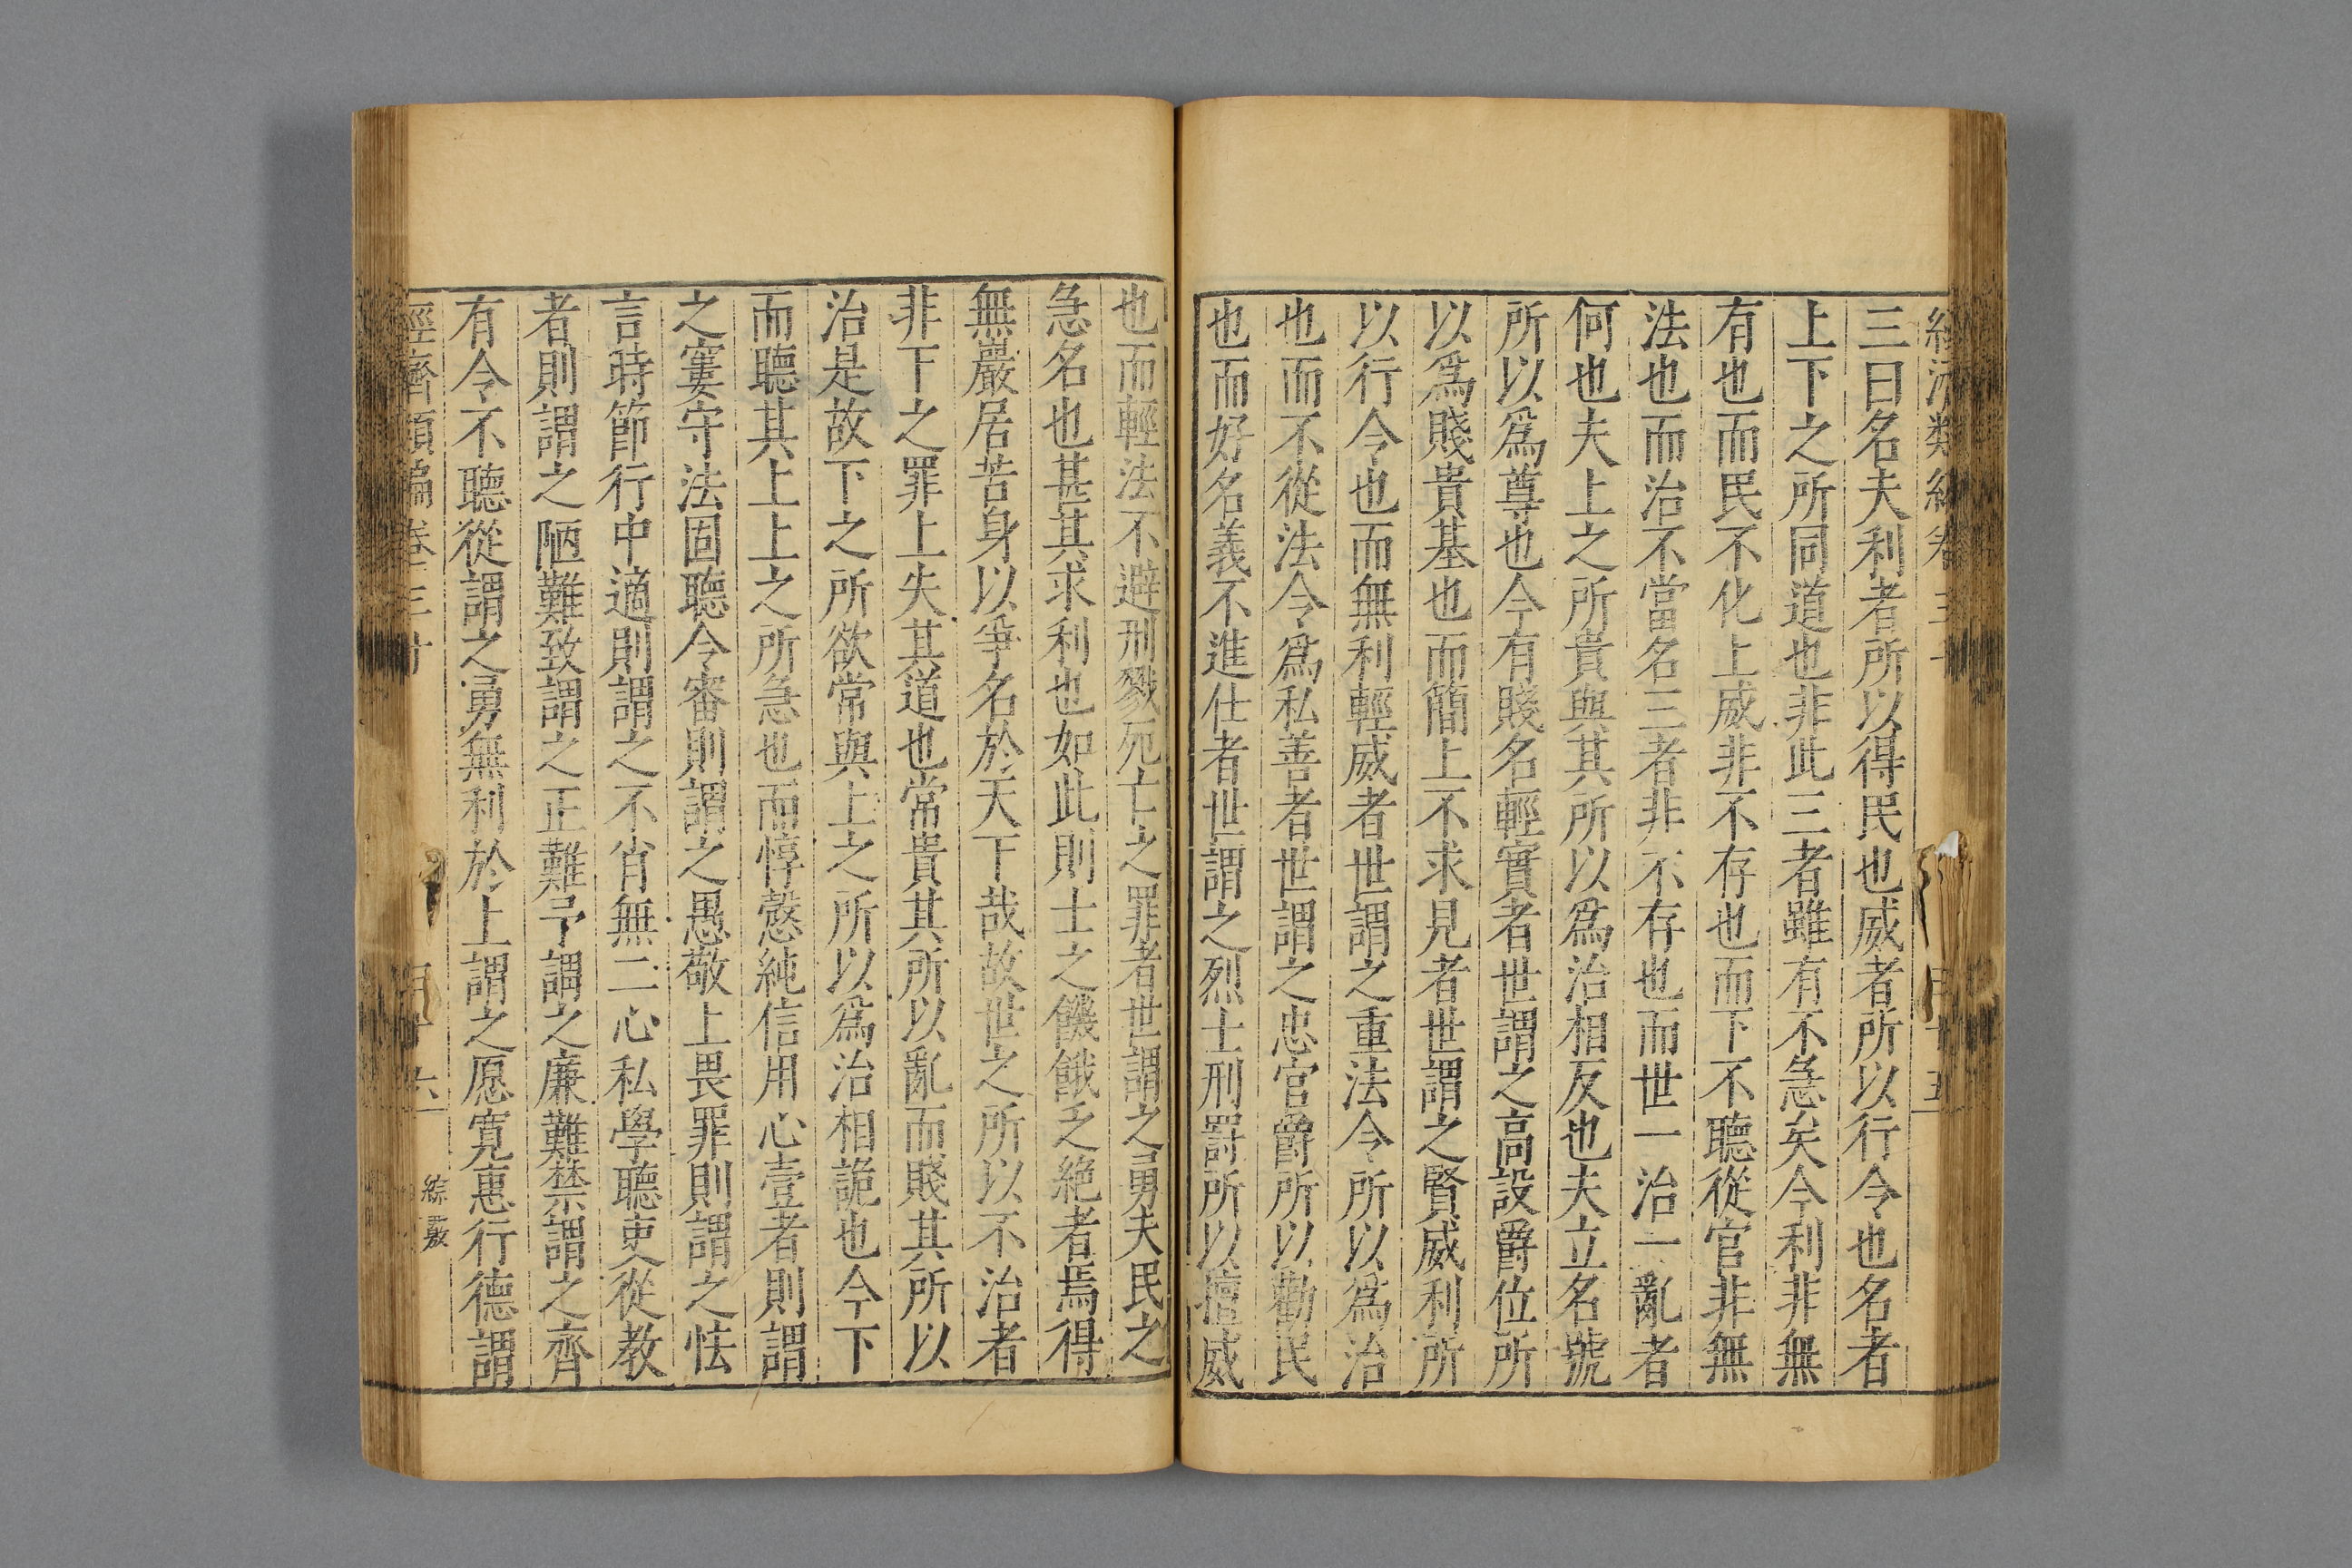 三曰名夫利者所以得民也威者所以行令也名者
上下之所同道也非此三者雖有不急矣今利非無
有也而民不化上威非不存也而下不聽從官非無
法也而治不當名三者非不存也而世一治一亂者
何也夫上之所貴與其所以爲治相反也夫立名號
所以爲尊也今有賤名輕實者世謂之高設爵位所
以爲賤貴基也而簡上不求見者世謂之賢威利所
以行令也而無利輕威者世謂之重法令所以爲治
也而不從法令爲私善者世謂之忠官爵所以勸民
也而好名義不進仕者世謂之烈士刑罰所以擅威
也而輕法不避刑戮死亡之罪者世謂之勇夫民之
急名也甚其求利也如此則士之饑餓乏絶者焉得
無嚴居苦身以爭名於天下哉故世之所以不治者
非下之罪上失其道也常貴其所以亂而賤其所以
治是故下之所欲常與上之所以爲治相詭也今下
而聽其上上之所急也而惇愨純信用心壹者則謂
之寠守法固聽令審則謂之愚敬上畏罪則謂之怯
言時節行中適則謂之不肖無二心私學聽吏從教
者則謂之陋難致謂之正難予謂之廉難禁謂之齊
有令不聽從謂之勇無利於上謂之愿寛惠行德謂
經濟類編卷三十
六
綜覈